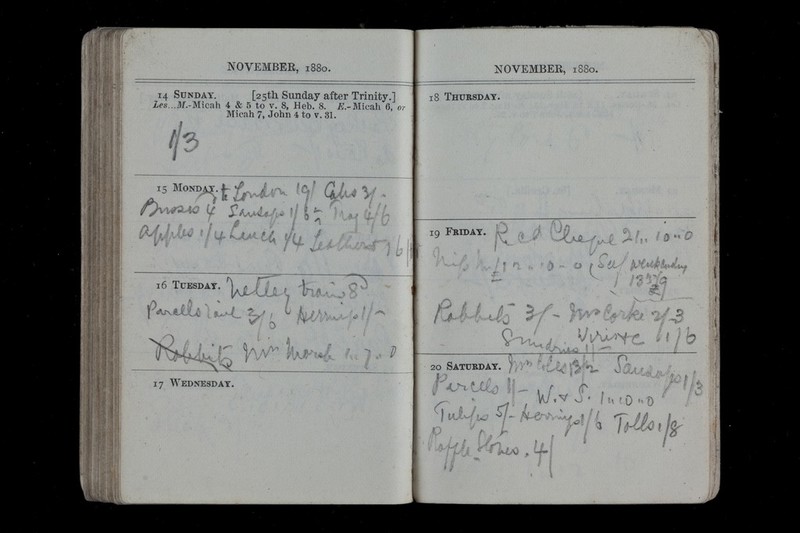 NOVEMBER, 1880.
14 SUNDAY. [25th Sunday after Trinity.]
Les...M.-Micah 4 & 5 to v. 8, Heb. 8. E.-Micah 6, or
Micah 7, John 4 to v. 31.
1/3
15 MONDAY. to London 19/ Cabs 3/-
Busses 4 Sausages 1/3 Tray 4/6
Apples 1/4 Lunch 1/4 Leathers
16 TUESDAY. Netley train 8
Parcells 3/6 Herrings 1/-
Rabbits Mrs Marsh 1..7..0
17 WEDNESDAY.
NOVEMBER, 1880.
18 THURSDAY.
19 FRIDAY. Rcd Cheque 21..10..0
Miss
Rabbits 3/- Mrs Corke 2/3
Sundries 1/- 1/6
20 SATURDAY. Mrs Coles Sausages 1/3
Parcells 1/- W. & S. 1..10..0
Tulips 5/- Herrings 1/6 Tolls 1/8
4/